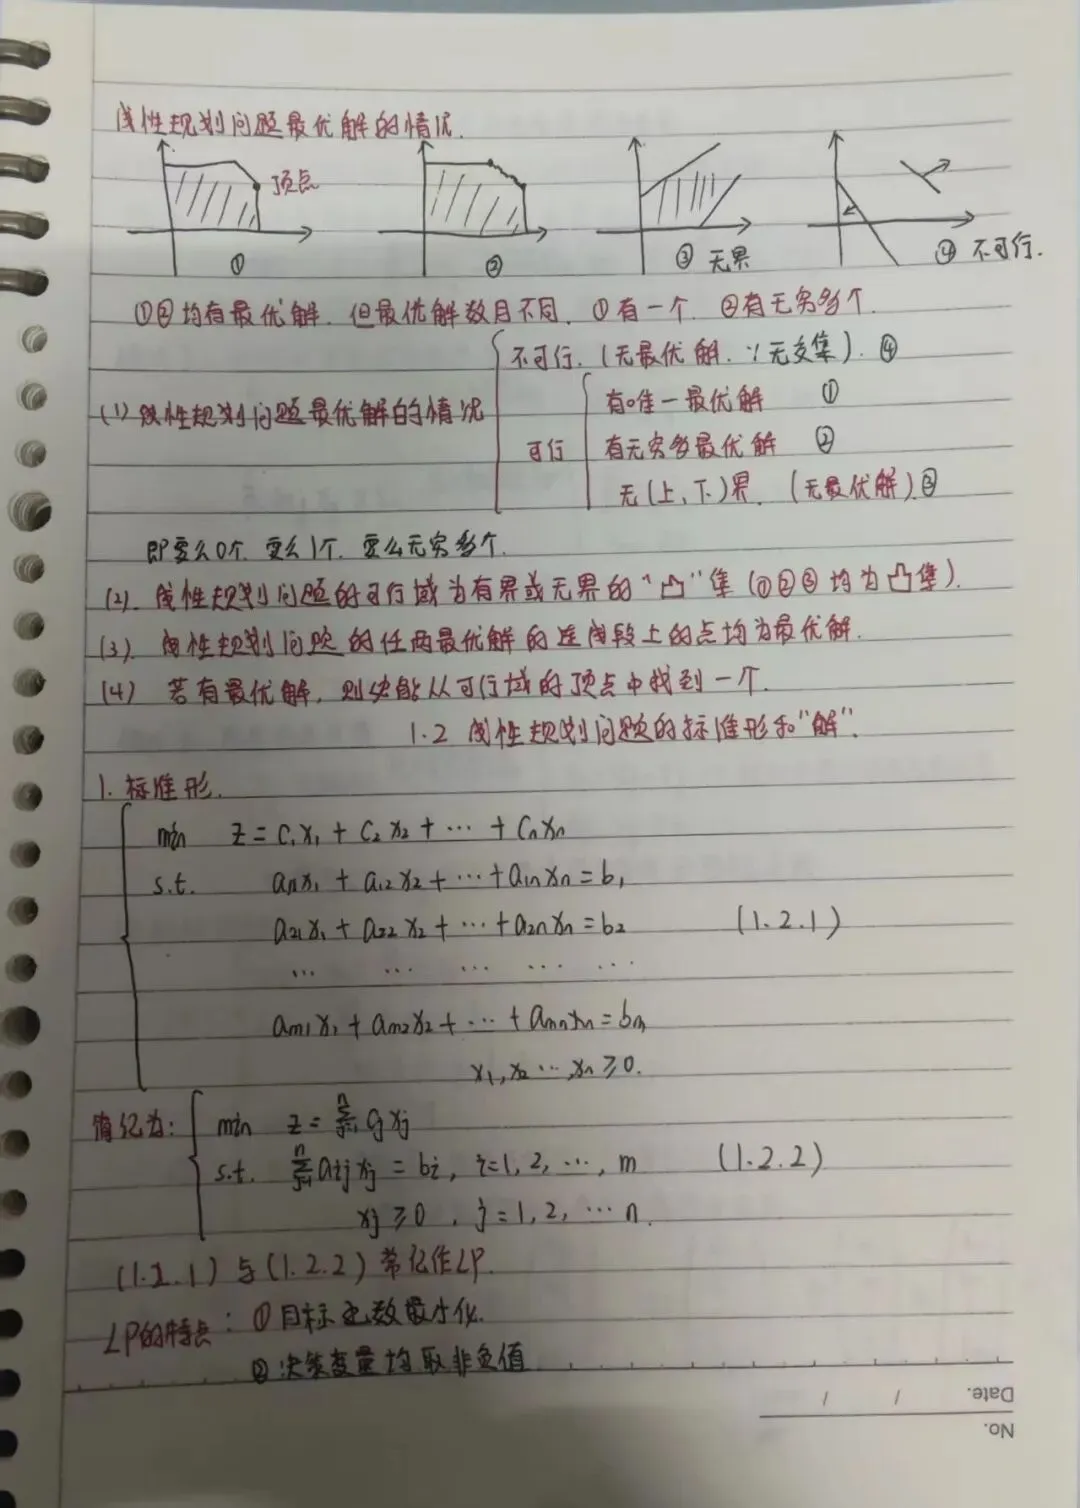 线性规划问题最优解的情况.
顶点
① ② ③ 无界 ④ 不可行.
①②均有最优解. 但最优解数目不同. ①有一个. ②有无穷多个.
不可行. (无最优解. ∵无交集). ④
(1) 线性规划问题最优解的情况
有唯一最优解 ①
可行 有无穷多最优解 ②
无(上、下)界. (无最优解) ③
即要么0个. 要么1个. 要么无穷多个.
(2). 线性规划问题的可行域为有界或无界的"凸"集 (①②③均为凸集).
(3). 线性规划问题的任两最优解的连线段上的点均为最优解.
(4) 若有最优解, 则必能从可行域的顶点中找到一个.
1.2 线性规划问题的标准形和"解".
1. 标准形.
min z = c₁x₁ + c₂x₂ + ⋯ + cₙxₙ
s.t. a₁₁x₁ + a₁₂x₂ + ⋯ + a₁ₙxₙ = b₁
a₂₁x₁ + a₂₂x₂ + ⋯ + a₂ₙxₙ = b₂ (1.2.1)
⋯ ⋯ ⋯ ⋯ ⋯
aₘ₁x₁ + aₘ₂x₂ + ⋯ + aₘₙxₙ = bₘ
x₁, x₂ ⋯, xₙ ≥ 0.
简记为: min z = ∑ⁿⱼ₌₁ cⱼxⱼ
s.t. ∑ⁿⱼ₌₁ aᵢⱼxⱼ = bᵢ, i=1, 2, ⋯, m (1.2.2)
xⱼ ≥ 0, j = 1, 2, ⋯ n.
(1.2.1) 与 (1.2.2) 常记作LP.
LP的特点: ① 目标函数最小化.
② 决策变量均取非负值
Date. / /
No.